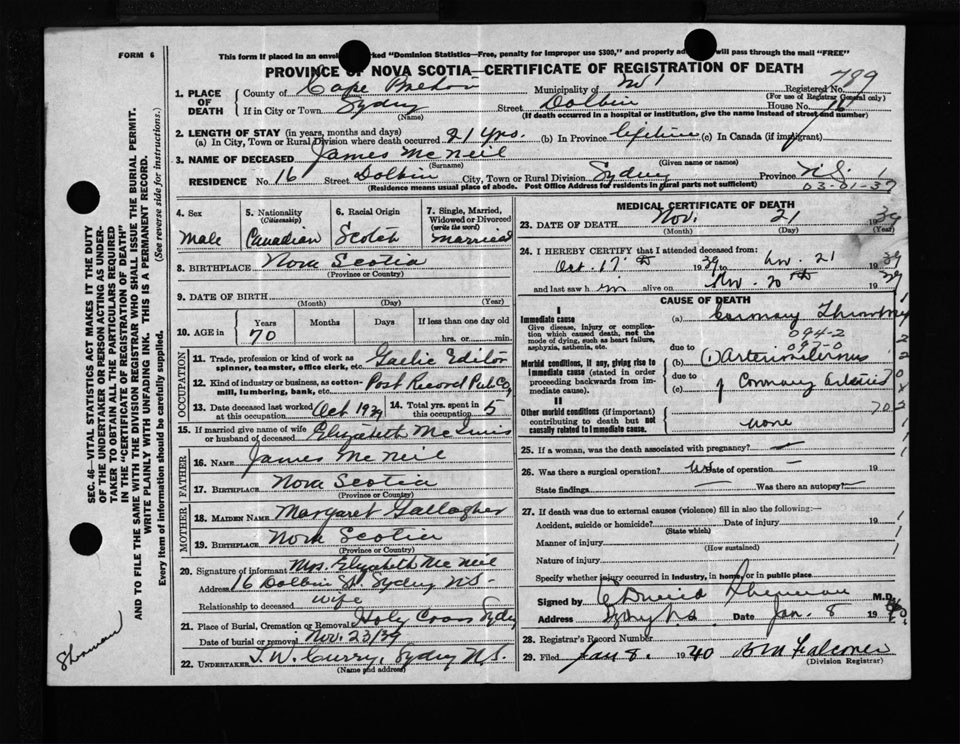 FORM 6
This form if placed in an enve marked "Dominion Statistics—Free, penalty for improper use $300," and properly ad will pass through the mail "FREE"
PROVINCE OF NOVA SCOTIA—CERTIFICATE OF REGISTRATION OF DEATH
1. PLACE OF DEATH
County of Cape Breton Municipality of Registered No. 789
(For use of Registrar General only)
If in City or Town Sydney Street Dolbin House No. 16
(Name) (If death occurred in a hospital or institution, give the name instead of street and number)
2. LENGTH OF STAY (in years, months and days)
(a) In City, Town or Rural Division where death occurred 21 yrs. (b) In Province lifetime (c) In Canada (if immigrant)
3. NAME OF DECEASED James Mc Neil
(Surname) (Given name or names)
RESIDENCE No. 16 Street Dolbin City, Town or Rural Division Sydney Province N.S.
(Residence means usual place of abode. Post Office Address for residents in rural parts not sufficient)
03-01-37
4. Sex
Male
5. Nationality
(Citizenship)
Canadian
6. Racial Origin
Scotch
7. Single, Married, Widowed or Divorced
(write the word)
Married
8. BIRTHPLACE Nova Scotia
(Province or Country)
9. DATE OF BIRTH
(Month) (Day) (Year)
10. AGE in Years Months Days If less than one day old
70 hrs. or min.
OCCUPATION
11. Trade, profession or kind of work as spinner, teamster, office clerk, etc. Gaelic Editor
12. Kind of industry or business, as cotton-mill, lumbering, bank, etc. Post Record Pub Co
13. Date deceased last worked at this occupation Oct 1939 14. Total yrs. spent in this occupation 5
15. If married give name of wife or husband of deceased Elizabeth Mc Innis
FATHER
16. NAME James Mc Neil
17. BIRTHPLACE Nova Scotia
(Province or Country)
MOTHER
18. MAIDEN NAME Margaret Gallagher
19. BIRTHPLACE Nova Scotia
(Province or Country)
20. Signature of informant Mrs. Elizabeth Mc Neil
Address 16 Dolbin St. Sydney N.S.
Relationship to deceased wife
21. Place of Burial, Cremation or Removal Holy Cross Sydney
Date of burial or removal Nov. 23/39
22. UNDERTAKER T. W. Curry, Sydney N.S.
(Name and address)
MEDICAL CERTIFICATE OF DEATH
23. DATE OF DEATH Nov. 21 1939
(Month) (Day) (Year)
24. I HEREBY CERTIFY that I attended deceased from:
Oct. 17th 1939 to Nov. 21 1939
and last saw him alive on Nov. 20th 1939
CAUSE OF DEATH
I
Immediate cause
Give disease, injury or complication which caused death, not the mode of dying, such as heart failure, asphyxia, asthenia, etc.
(a) Coronary Thrombosis
094-2
due to 097-0
Morbid conditions, if any, giving rise to immediate cause (stated in order proceeding backwards from immediate cause).
(b) (1) Arteriosclerosis
due to
(c) of Coronary Arteries
II
Other morbid conditions (if important) contributing to death but not causally related to immediate cause.
none
25. If a woman, was the death associated with pregnancy? —
26. Was there a surgical operation? Date of operation — 19
State findings Was there an autopsy? —
27. If death was due to external causes (violence) fill in also the following:—
Accident, suicide or homicide? Date of injury 19
(State which)
Manner of injury
(How sustained)
Nature of injury
Specify whether injury occurred in industry, in home, or in public place
Signed by M.D.
Address Sydney N.S. Date Jan. 8 1940
28. Registrar's Record Number
29. Filed Jan 8. 1940 Falconer
(Division Registrar)
SEC. 46—VITAL STATISTICS ACT MAKES IT THE DUTY
OF THE UNDERTAKER OR PERSON ACTING AS UNDER-
TAKER TO OBTAIN ALL THE PARTICULARS REQUIRED
IN THE "CERTIFICATE OF REGISTRATION OF DEATH"
AND TO FILE THE SAME WITH THE DIVISION REGISTRAR WHO SHALL ISSUE THE BURIAL PERMIT.
WRITE PLAINLY WITH UNFADING INK. THIS IS A PERMANENT RECORD.
Every item of information should be carefully supplied. (See reverse side for instructions.)